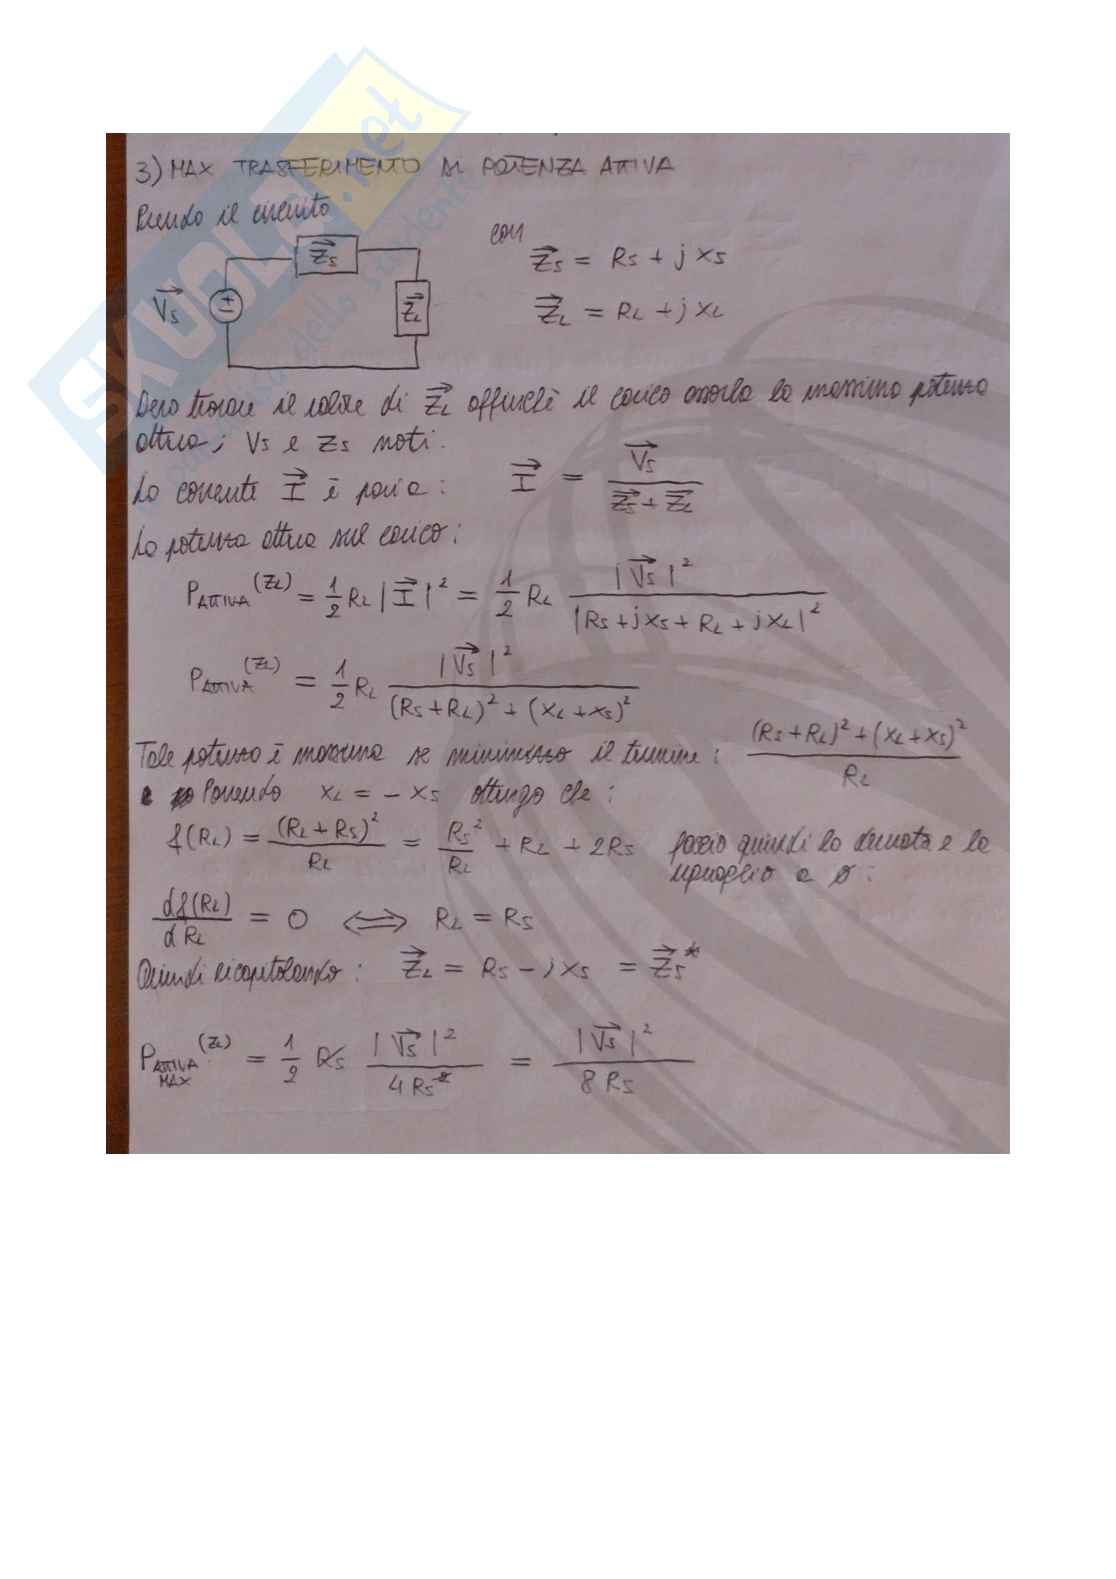 SKUOLA.net
3) MAX TRASFERIMENTO DI POTENZA ATTIVA
Prendo il circuito
con
Z⃗s = Rs + j Xs
Z⃗L = RL + j XL
V⃗s ± Z⃗s Z⃗L
Devo trovare il valore di Z⃗L affinchè il carico assorba la massima potenza
attiva; Vs e Zs noti.
La corrente I⃗ è pari a: I⃗ = V⃗s / (Z⃗s + Z⃗L)
La potenza attiva sul carico:
P_ATTIVA^(ZL) = 1/2 RL |I⃗|² = 1/2 RL |V⃗s|² / |Rs + jXs + RL + jXL|²
P_ATTIVA^(ZL) = 1/2 RL |V⃗s|² / ((Rs + RL)² + (XL + Xs)²)
Tale potenza è massima se minimizzo il termine: ((Rs + RL)² + (XL + Xs)²) / RL
Ponendo XL = - Xs ottengo che:
f(RL) = (RL + Rs)² / RL = Rs² / RL + RL + 2Rs faccio quindi la derivata e la
uguaglio a 0:
df(RL) / dRL = 0 ⟺ RL = Rs
Quindi ricapitolando: Z⃗L = Rs - jXs = Z⃗s*
P_ATTIVA MAX^(ZL) = 1/2 Rs |V⃗s|² / 4Rs² = |V⃗s|² / 8Rs